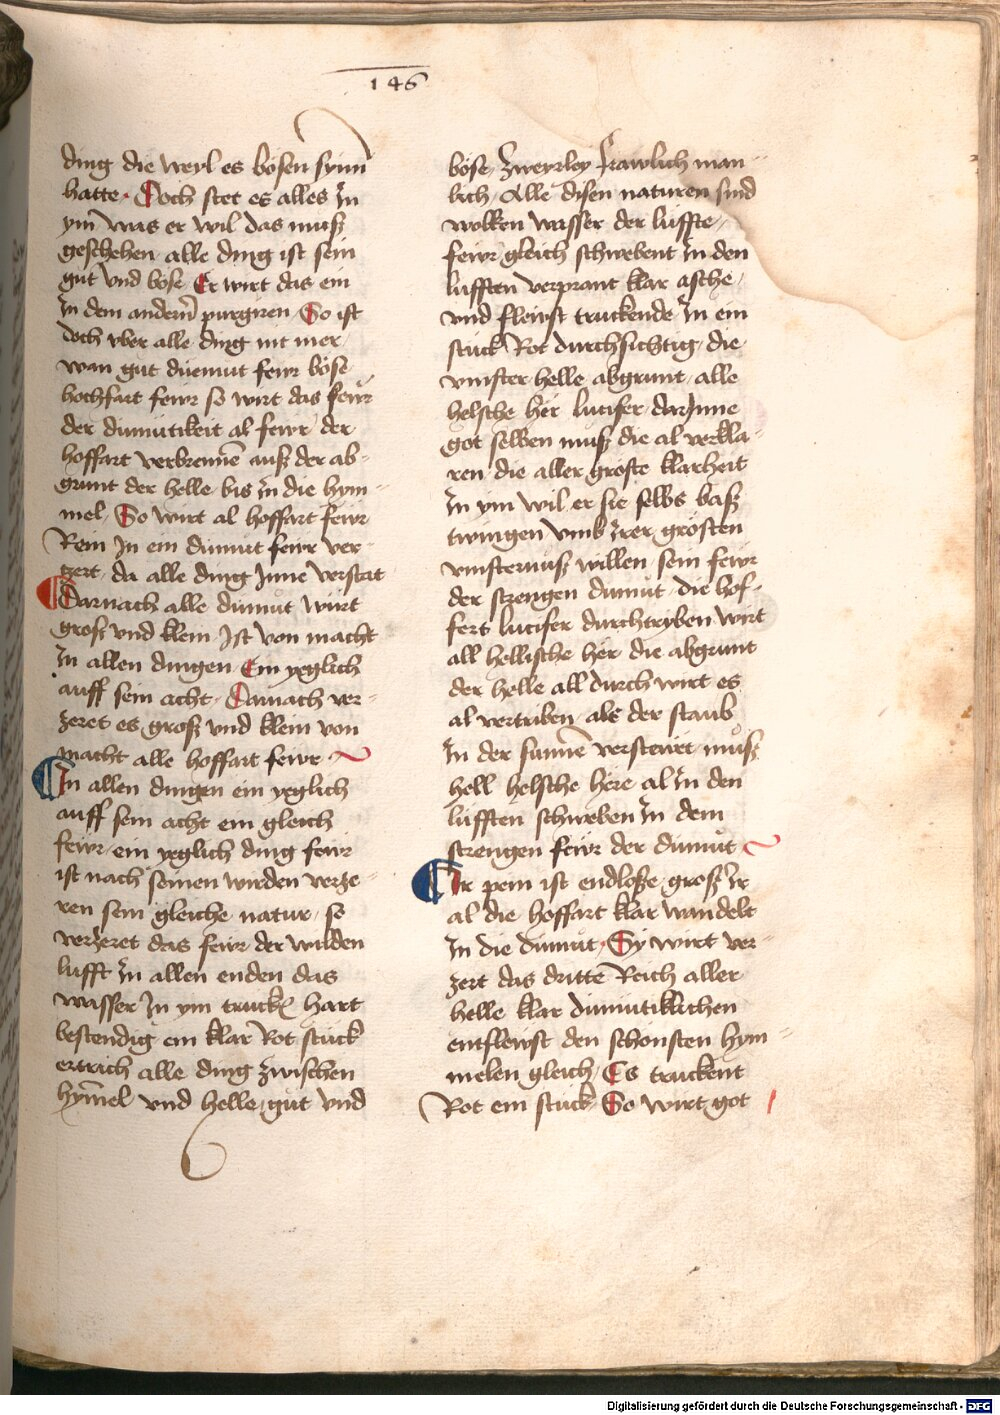 146
ding die weyl es bösen synn
hatte. Doch stet es alles in
ym was er wil das muß
geschehen alle ding ist sein
gut vnd böse Er wirt das ein
in dem andern̄ purgiren So ist
doch vber alle ding nit mer
wan gut diemut fewr böse
hochfart fewr so wirt das fewr
der diemutikeit al fewr der
hoffart verbrennē auß der ab-
grunt der helle bis in die hym-
mel. So wirt al hoffart fewr
Rein in ein diemut fewr ver-
zert. da alle ding Inne verstat
Darnach alle diemut wirt
groß vnd klein Ist von macht
in allen dingen Ein yeglich
auff sein acht. Darnach ver-
zeret es groß vnd klein von
macht alle hoffart fewr
In allen dingen ein yeglich
auff sein acht ein gleich
fewr ein yeglich ding fewr
ist nach seinen wirden verze-
ren sein gleiche natur so
verzeret das fewr der wilden
lufft in allen enden das
wasser In ym trucken hart
bestendig ein klar Rot stuck
ertrich alle ding zwischen
hym̄el vnd helle gut vnd
böse zweyrley frawlich man-
lich Alle disen naturen sind
wolken wasser der luffte
fewr gleich schwebent in den
lufften verprant klar asche
vnd flewst truckende in ein
stuck Rot durchsichtig die
vinster helle abgrunt alle
helsche her lucifer darInne
got selben muß die al verkla-
ren die aller gröste klarheit
in ym wil er sie selbs baß
twingen vmb irer grösten
vinsternuß willen sein fewr
der strengen diemut die hof-
fert lucifer durchtryben wirt
all hellische her die abgrunt
der helle all durch wirt es
al vertriben als der staub
In der sunnē verstewet muß
hell helsche here al in den
lufften schweben in dem
strengen fewr der diemut
Ir pein ist endloße groß Ir
al die hoffart klar wandelt
In die diemut. Sy wirt ver-
zert das dritte Reich aller
helle klar diemutiklichen
entflewst den schönsten hym-
melen gleich Es truckent
Rot ein stuck So wirt got
Digitalisierung gefördert durch die Deutsche Forschungsgemeinschaft - DFG